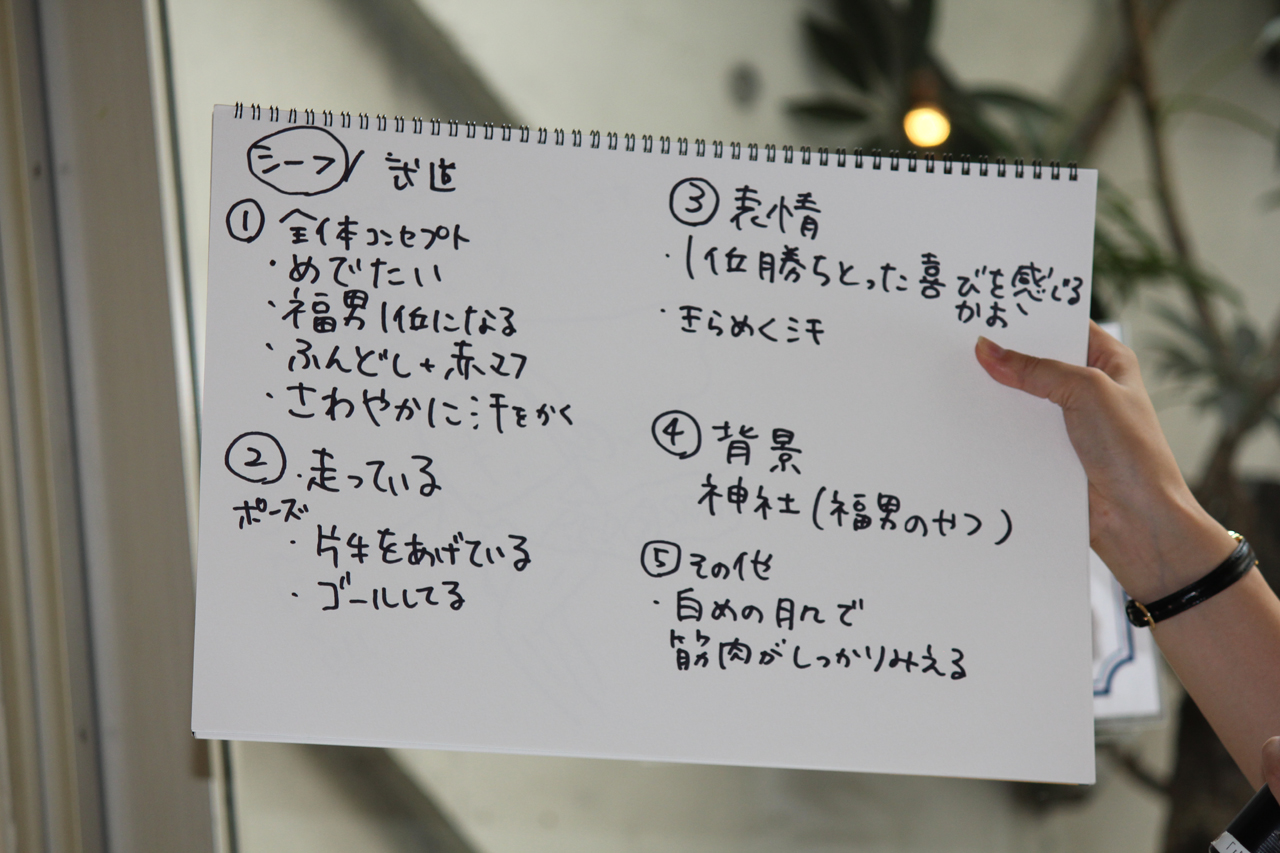 シーフ 武道
① 全体コンセプト
・めでたい
・福男1位になる
・ふんどし+赤マフ
・さわやかに汗をかく
② ・走っている
ポーズ
・片手をあげている
・ゴールしてる
③ 表情
・1位勝ちとった喜びを感じる
かお
・きらめく汗
④ 背景
神社(福男のやつ)
⑤ その他
・白めの肌で
筋肉がしっかりみえる